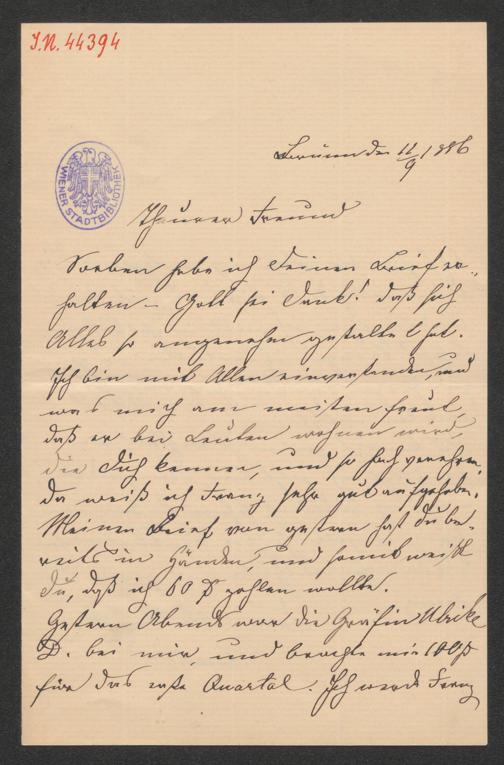 I.N. 44394
WIENER STADTBIBLIOTHEK
Brünn den 11/9 1886
Theurer Freund
Soeben habe ich Deinen Brief er-
halten – Gott sei Dank! daß sich
Alles so angenehm gestaltet hat.
Ich bin mit Allen einverstanden, und
was mich am meisten freut,
daß er bei Leuten wohnen wird,
die Dich kennen, und so hoch verehren,
da weiß ich Franz sehr gut aufgehoben.
Meinen Brief von gestern hast Du be-
reits in Händen, und somit weißt
Du, daß ich 60 f zahlen wollte.
Gestern Abends war die Gräfin Ulrike
D. bei mir, und brachte mir 100 f
für das erste Quartal. Ich werde Franz